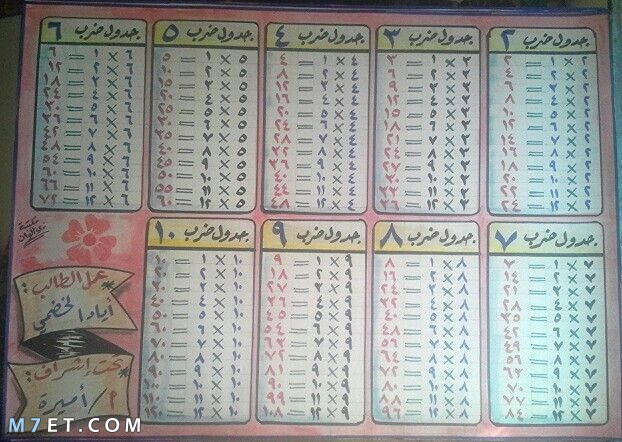 جدول ضرب ٢
٢ × ١ = ٢
٢ × ٢ = ٤
٢ × ٣ = ٦
٢ × ٤ = ٨
٢ × ٥ = ١٠
٢ × ٦ = ١٢
٢ × ٧ = ١٤
٢ × ٨ = ١٦
٢ × ٩ = ١٨
٢ × ١٠ = ٢٠
٢ × ١١ = ٢٢
٢ × ١٢ = ٢٤
جدول ضرب ٣
٣ × ١ = ٣
٣ × ٢ = ٦
٣ × ٣ = ٩
٣ × ٤ = ١٢
٣ × ٥ = ١٥
٣ × ٦ = ١٨
٣ × ٧ = ٢١
٣ × ٨ = ٢٤
٣ × ٩ = ٢٧
٣ × ١٠ = ٣٠
٣ × ١١ = ٣٣
٣ × ١٢ = ٣٦
جدول ضرب ٤
٤ × ١ = ٤
٤ × ٢ = ٨
٤ × ٣ = ١٢
٤ × ٤ = ١٦
٤ × ٥ = ٢٠
٤ × ٦ = ٢٤
٤ × ٧ = ٢٨
٤ × ٨ = ٣٢
٤ × ٩ = ٣٦
٤ × ١٠ = ٤٠
٤ × ١١ = ٤٤
٤ × ١٢ = ٤٨
جدول ضرب ٥
٥ × ١ = ٥
٥ × ٢ = ١٠
٥ × ٣ = ١٥
٥ × ٤ = ٢٠
٥ × ٥ = ٢٥
٥ × ٦ = ٣٠
٥ × ٧ = ٣٥
٥ × ٨ = ٤٠
٥ × ٩ = ٤٥
٥ × ١٠ = ٥٠
٥ × ١١ = ٥٥
٥ × ١٢ = ٦٠
جدول ضرب ٦
٦ × ١ = ٦
٦ × ٢ = ١٢
٦ × ٣ = ١٨
٦ × ٤ = ٢٤
٦ × ٥ = ٣٠
٦ × ٦ = ٣٦
٦ × ٧ = ٤٢
٦ × ٨ = ٤٨
٦ × ٩ = ٥٤
٦ × ١٠ = ٦٠
٦ × ١١ = ٦٦
٦ × ١٢ = ٧٢
جدول ضرب ٧
٧ × ١ = ٧
٧ × ٢ = ١٤
٧ × ٣ = ٢١
٧ × ٤ = ٢٨
٧ × ٥ = ٣٥
٧ × ٦ = ٤٢
٧ × ٧ = ٤٩
٧ × ٨ = ٥٦
٧ × ٩ = ٦٣
٧ × ١٠ = ٧٠
٧ × ١١ = ٧٧
٧ × ١٢ = ٨٤
جدول ضرب ٨
٨ × ١ = ٨
٨ × ٢ = ١٦
٨ × ٣ = ٢٤
٨ × ٤ = ٣٢
٨ × ٥ = ٤٠
٨ × ٦ = ٤٨
٨ × ٧ = ٥٦
٨ × ٨ = ٦٤
٨ × ٩ = ٧٢
٨ × ١٠ = ٨٠
٨ × ١١ = ٨٨
٨ × ١٢ = ٩٦
جدول ضرب ٩
٩ × ١ = ٩
٩ × ٢ = ١٨
٩ × ٣ = ٢٧
٩ × ٤ = ٣٦
٩ × ٥ = ٤٥
٩ × ٦ = ٥٤
٩ × ٧ = ٦٣
٩ × ٨ = ٧٢
٩ × ٩ = ٨١
٩ × ١٠ = ٩٠
٩ × ١١ = ٩٩
٩ × ١٢ = ١٠٨
جدول ضرب ١٠
١٠ × ١ = ١٠
١٠ × ٢ = ٢٠
١٠ × ٣ = ٣٠
١٠ × ٤ = ٤٠
١٠ × ٥ = ٥٠
١٠ × ٦ = ٦٠
١٠ × ٧ = ٧٠
١٠ × ٨ = ٨٠
١٠ × ٩ = ٩٠
١٠ × ١٠ = ١٠٠
١٠ × ١١ = ١١٠
١٠ × ١٢ = ١٢٠
مكتبة
عمل الطالب:
أياد
تحت إشراف:
ا/ أميرة
M7ET.COM